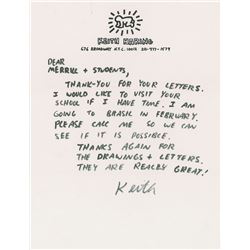 KEITH HARING
676 BROADWAY N.Y.C. 10012 212-477-1579
DEAR
MERRILL + STUDENTS,
THANK-YOU FOR YOUR LETTERS.
I WOULD LIKE TO VISIT YOUR
SCHOOL IF I HAVE TIME. I AM
GOING TO BRASIL IN FEBRUARY.
PLEASE CALL ME SO WE CAN
SEE IF IT IS POSSIBLE.
THANKS AGAIN FOR
THE DRAWINGS + LETTERS.
THEY ARE REALLY GREAT!
Keith